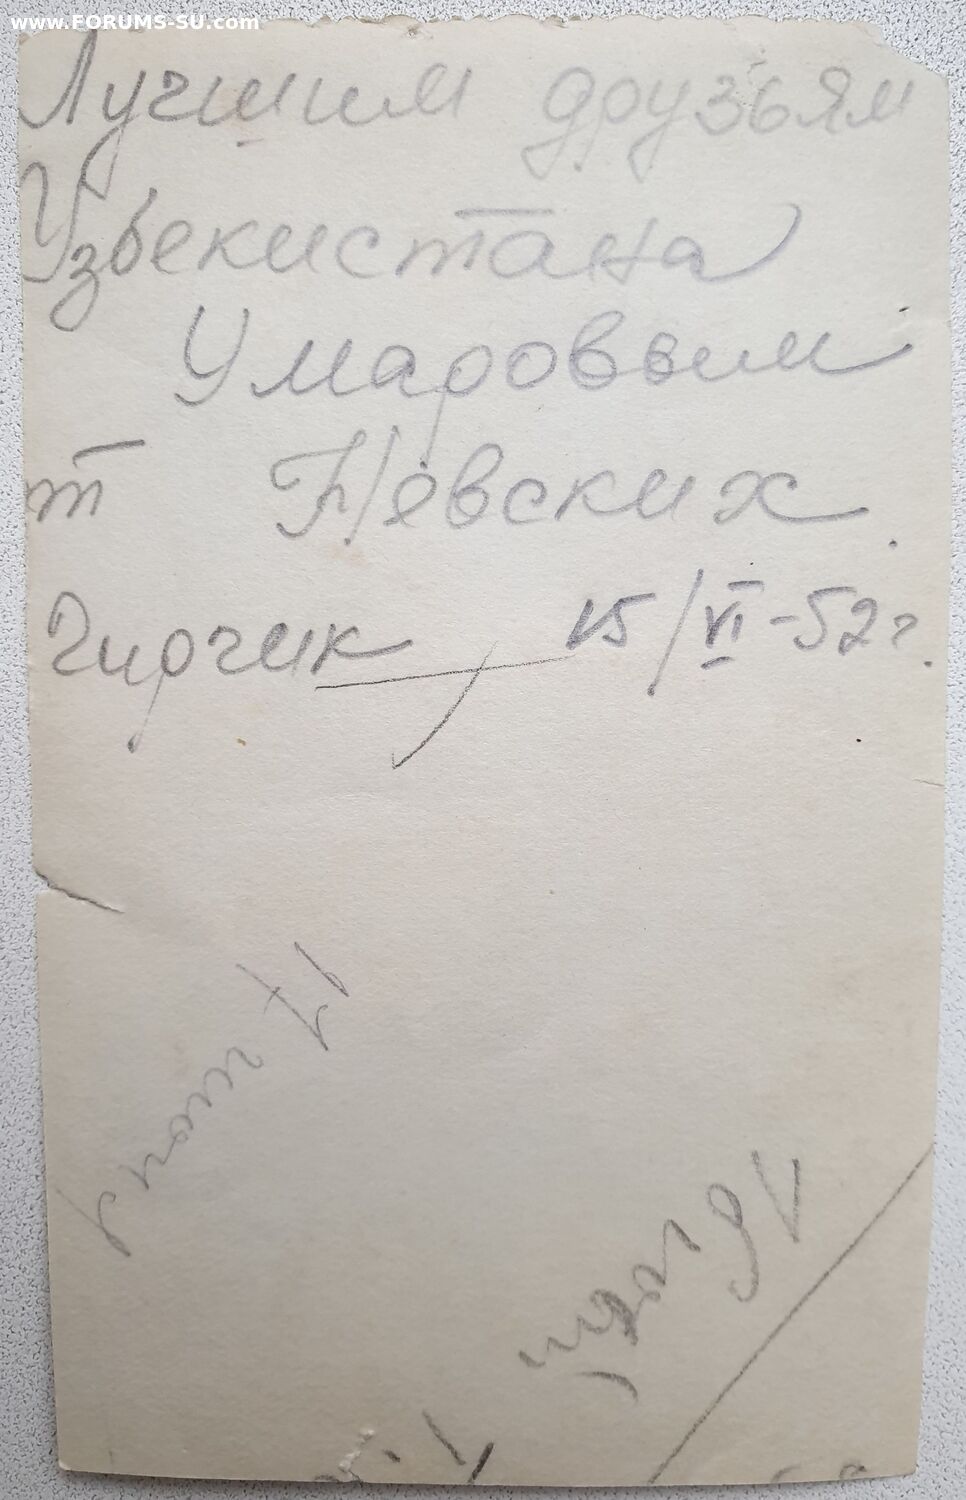 www.FORUMS-SU.com
Лучшим друзьям
Узбекистана
Умаровым
т Невских.
Чирчик 15/VI-52г.